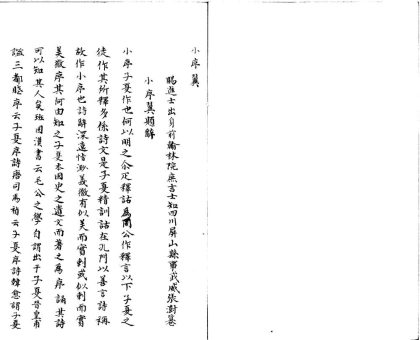 小序翼
賜進士出身前翰林院庶吉士知四川屏山縣事武威張澍纂
小序翼題辭
小序子夏作也何以明之爾疋釋詁爲周公作釋言以下子夏之
徒作其所釋多係詩文是子夏精訓詁在孔門以善言詩稱
故作小序也詩辭深遠恉渺義微有似美而實刺或似刺而實
美微序其何由知之子夏本因史之遺文而著之爲序誦其詩
可以知其人矣班固漢書云毛公之學自謂出于子夏晉皇甫
謐三都賦序云子夏序詩唐司馬貞云子夏序詩韓愈謂子夏